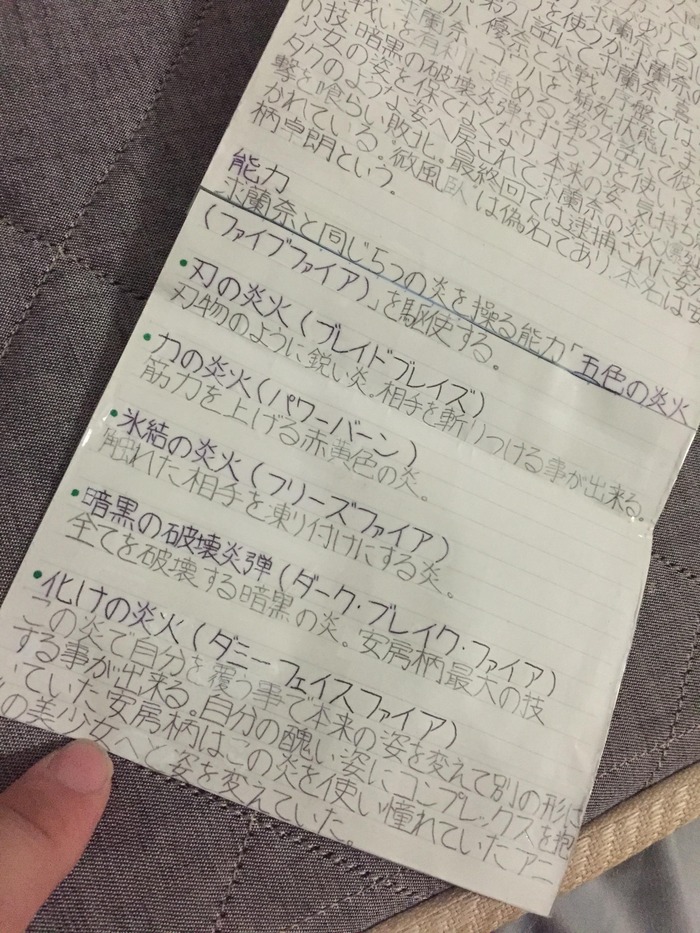 を使うが求蘭奈と同
優奈と交戦。序盤では
戦いを有利に進める。第24話にて彼
の技、暗黒の破壊炎弾を打ち力を使い
少女の姿を保てなくなり本来の姿、気持ち
タクのような姿へ戻されて求蘭奈の炎火
撃を喰らい敗北。最終回では逮捕された
かれている。微風 は偽名であり本名は安
柄卓朗という。
能力
求蘭奈と同じ5つの炎を操る能力「五色の炎火
(ファイブファイア)」を駆使する。
・刃の炎火(ブレイドブレイズ)
刃物のように鋭い炎。相手を斬りつける事が出来る。
・力の炎火(パワーバーン)
筋力を上げる赤黄色の炎。
・氷結の炎火(フリーズファイア)
触れた相手を凍り付けにする炎。
・暗黒の破壊炎弾(ダーク・ブレイク・ファイア)
全てを破壊する暗黒の炎。安房柄最大の技
・化けの炎火(ダニーフェイスファイア)
この炎で自分を覆う事で本来の姿を変えて別の形に
する事が出来る。自分の醜い姿にコンプレックスを抱
いていた安房柄はこの炎を使い憧れていたアニ
の美少女へと姿を変えていた。